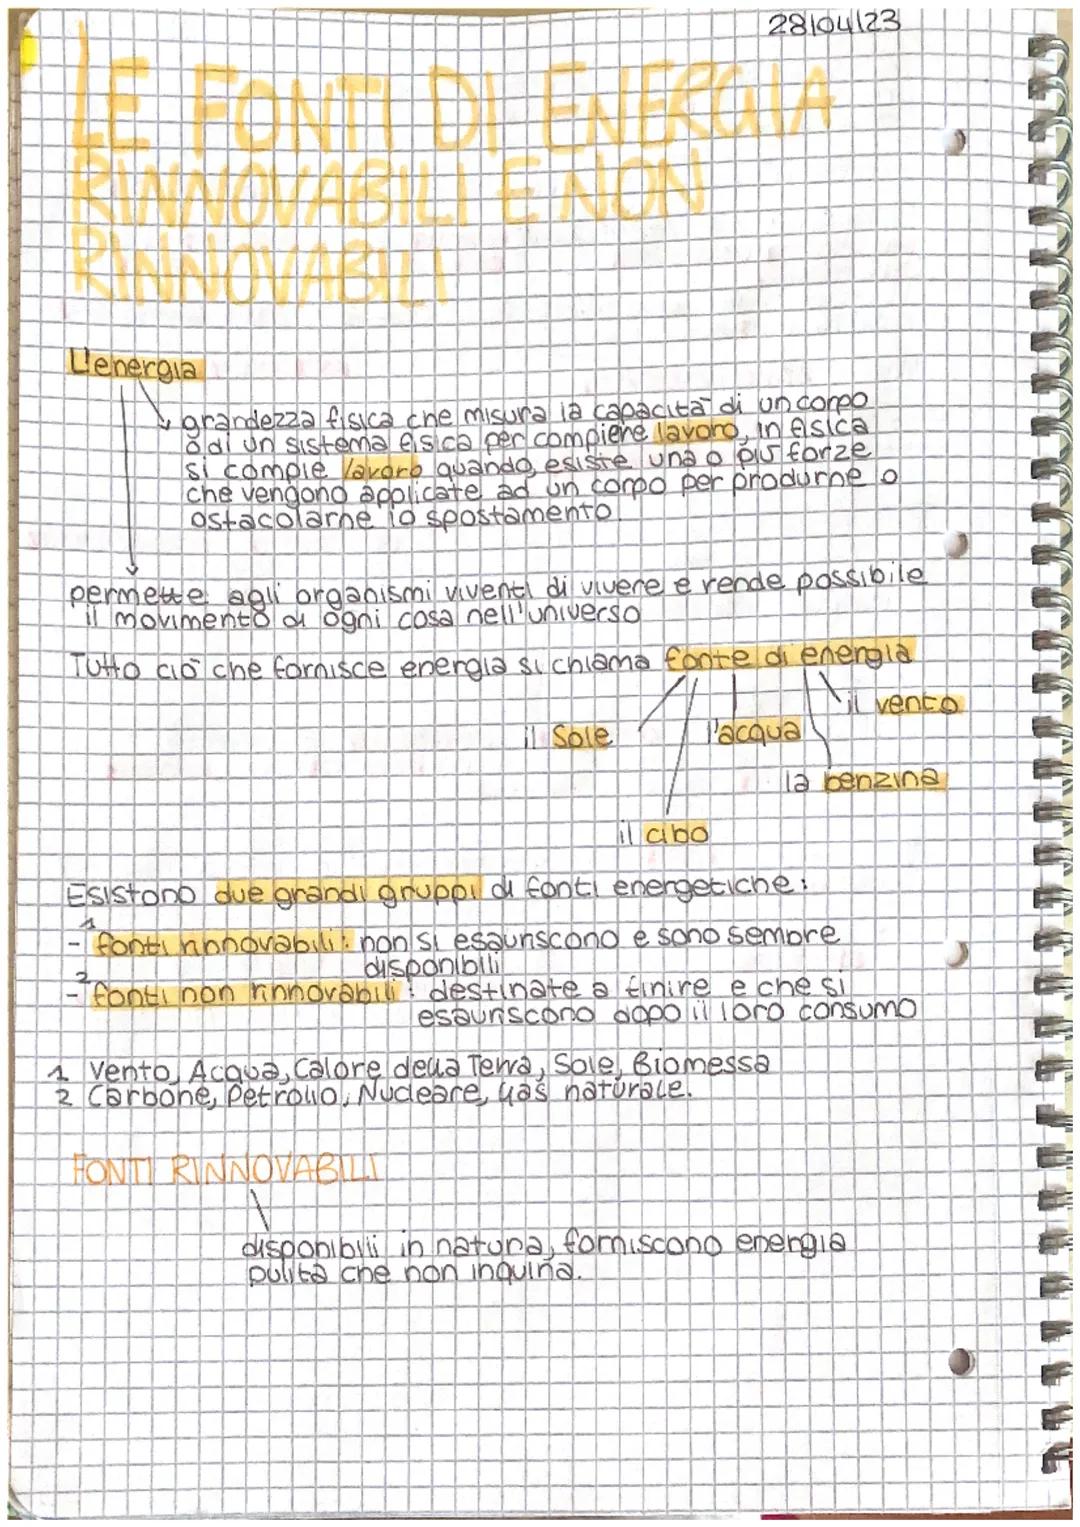 28/04/23
LE FONTI DI ENERGIA
RINNOVABILI E NON
RINNOVABILI
L'energia
grandezza fisica che misura la capacità di un corpo
o di un sistema fisica per compiere lavoro, in fisica
si compie lavoro quando esiste una o più forze
che vengono applicate ad un corpo per produrne o
ostacolarne lo spostamento.
permette agli organismi viventi di vivere e rende possibile
il movimento di ogni cosa nell'universo
Tutto ciò che fornisce energia si chiama fonte di energia
il vento
il Sole l'acqua
la benzina
il cibo
Esistono due grandi gruppi di fonti energetiche:
1
- fonti rinnovabili: non si esauriscono e sono sempre
disponibili
2
- fonti non rinnovabili: destinate a finire e che si
esauriscono dopo il loro consumo
1 Vento, Acqua, Calore della Terra, Sole, Biomessa
2 Carbone, Petrolio, Nucleare, gas naturale.
FONTI RINNOVABILI
disponibili in natura, forniscono energia
pulita che non inquina.